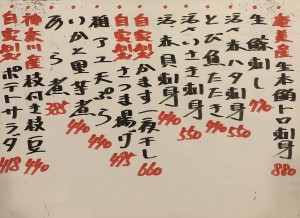 奄美産生本鮪トロ刺身 880
生刺し 770
ハタ刺身 550
とび魚たたき 440
いさき刺身 550
活赤貝刺身 440
自家製かます一夜干し 660
自家製さつま揚げ 495
稚アユ天ぷら 440
いかと里芋煮 440
あら煮 385
神奈川産枝付き枝豆 440
自家製ポテトサラダ 418